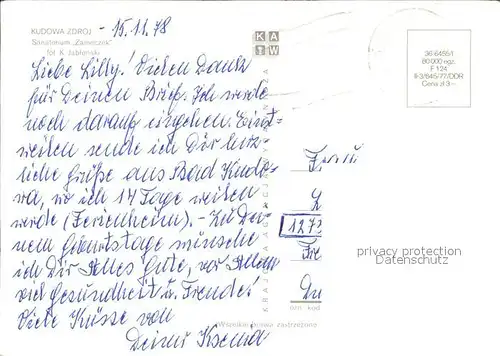 KUDOWA ZDRÓJ
Sanatorium „Zameczek"
fot. K. Jabłoński
15.11.78
KAW
36-6455/I
80 000 egz.
F 124
II-3/645/77/DDR
Cena zł 3—
Liebe Lilly! Vielen Dank
für Deinen Brief. Ich werde
noch darauf eingehen. Einst-
weilen sende ich Dir herz-
liche Grüße aus Bad Kudo-
wa, wo ich 14 Tage weilen
werde (Ferienheim). – Zu Dei-
nem Geburtstage wünsche
ich Dir Alles Gute, vor Allem
viel Gesundheit u. Freude!
Viele Küsse von
Deiner Ksenia
KRAJOWA AGENCJA
127
Fre
privacy protection
Datenschutz
Wszelkie prawa zastrzeżone